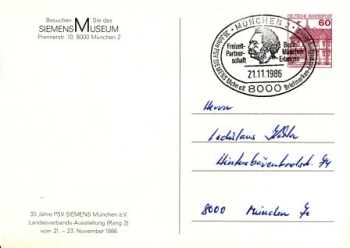 Besuchen Sie das
SIEMENS MUSEUM
Prannerstr. 10, 8000 München 2
MÜNCHEN
Freizeit-
Partner-
schaft
Berlin
München
Erlangen
21.11.1986
8000
DEUTSCHE BUNDESPOST
60
Herrn
Ladislaus
8000 München 70
35 Jahre PSV SIEMENS München e.V.
Landesverbands-Ausstellung (Rang 2)
vom 21. - 23. November 1986